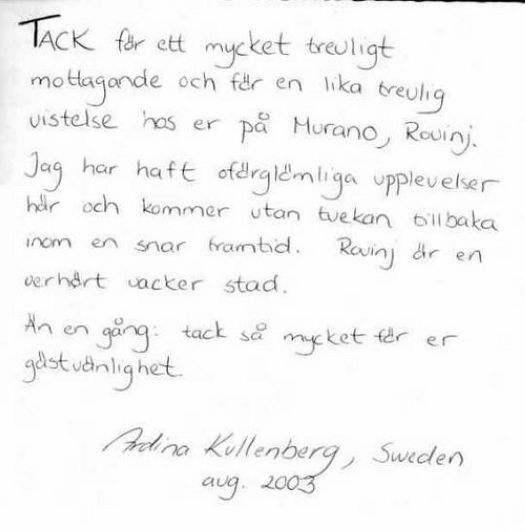 TACK för ett mycket trevligt
mottagande och för en lika trevlig
vistelse hos er på Murano, Rovinj.
Jag har haft oförglömliga upplevelser
här och kommer utan tvekan tillbaka
inom en snar framtid. Rovinj är en
oerhört vacker stad.
Än en gång: tack så mycket för er
gästvänlighet.
Kullenberg, Sweden
aug. 2003